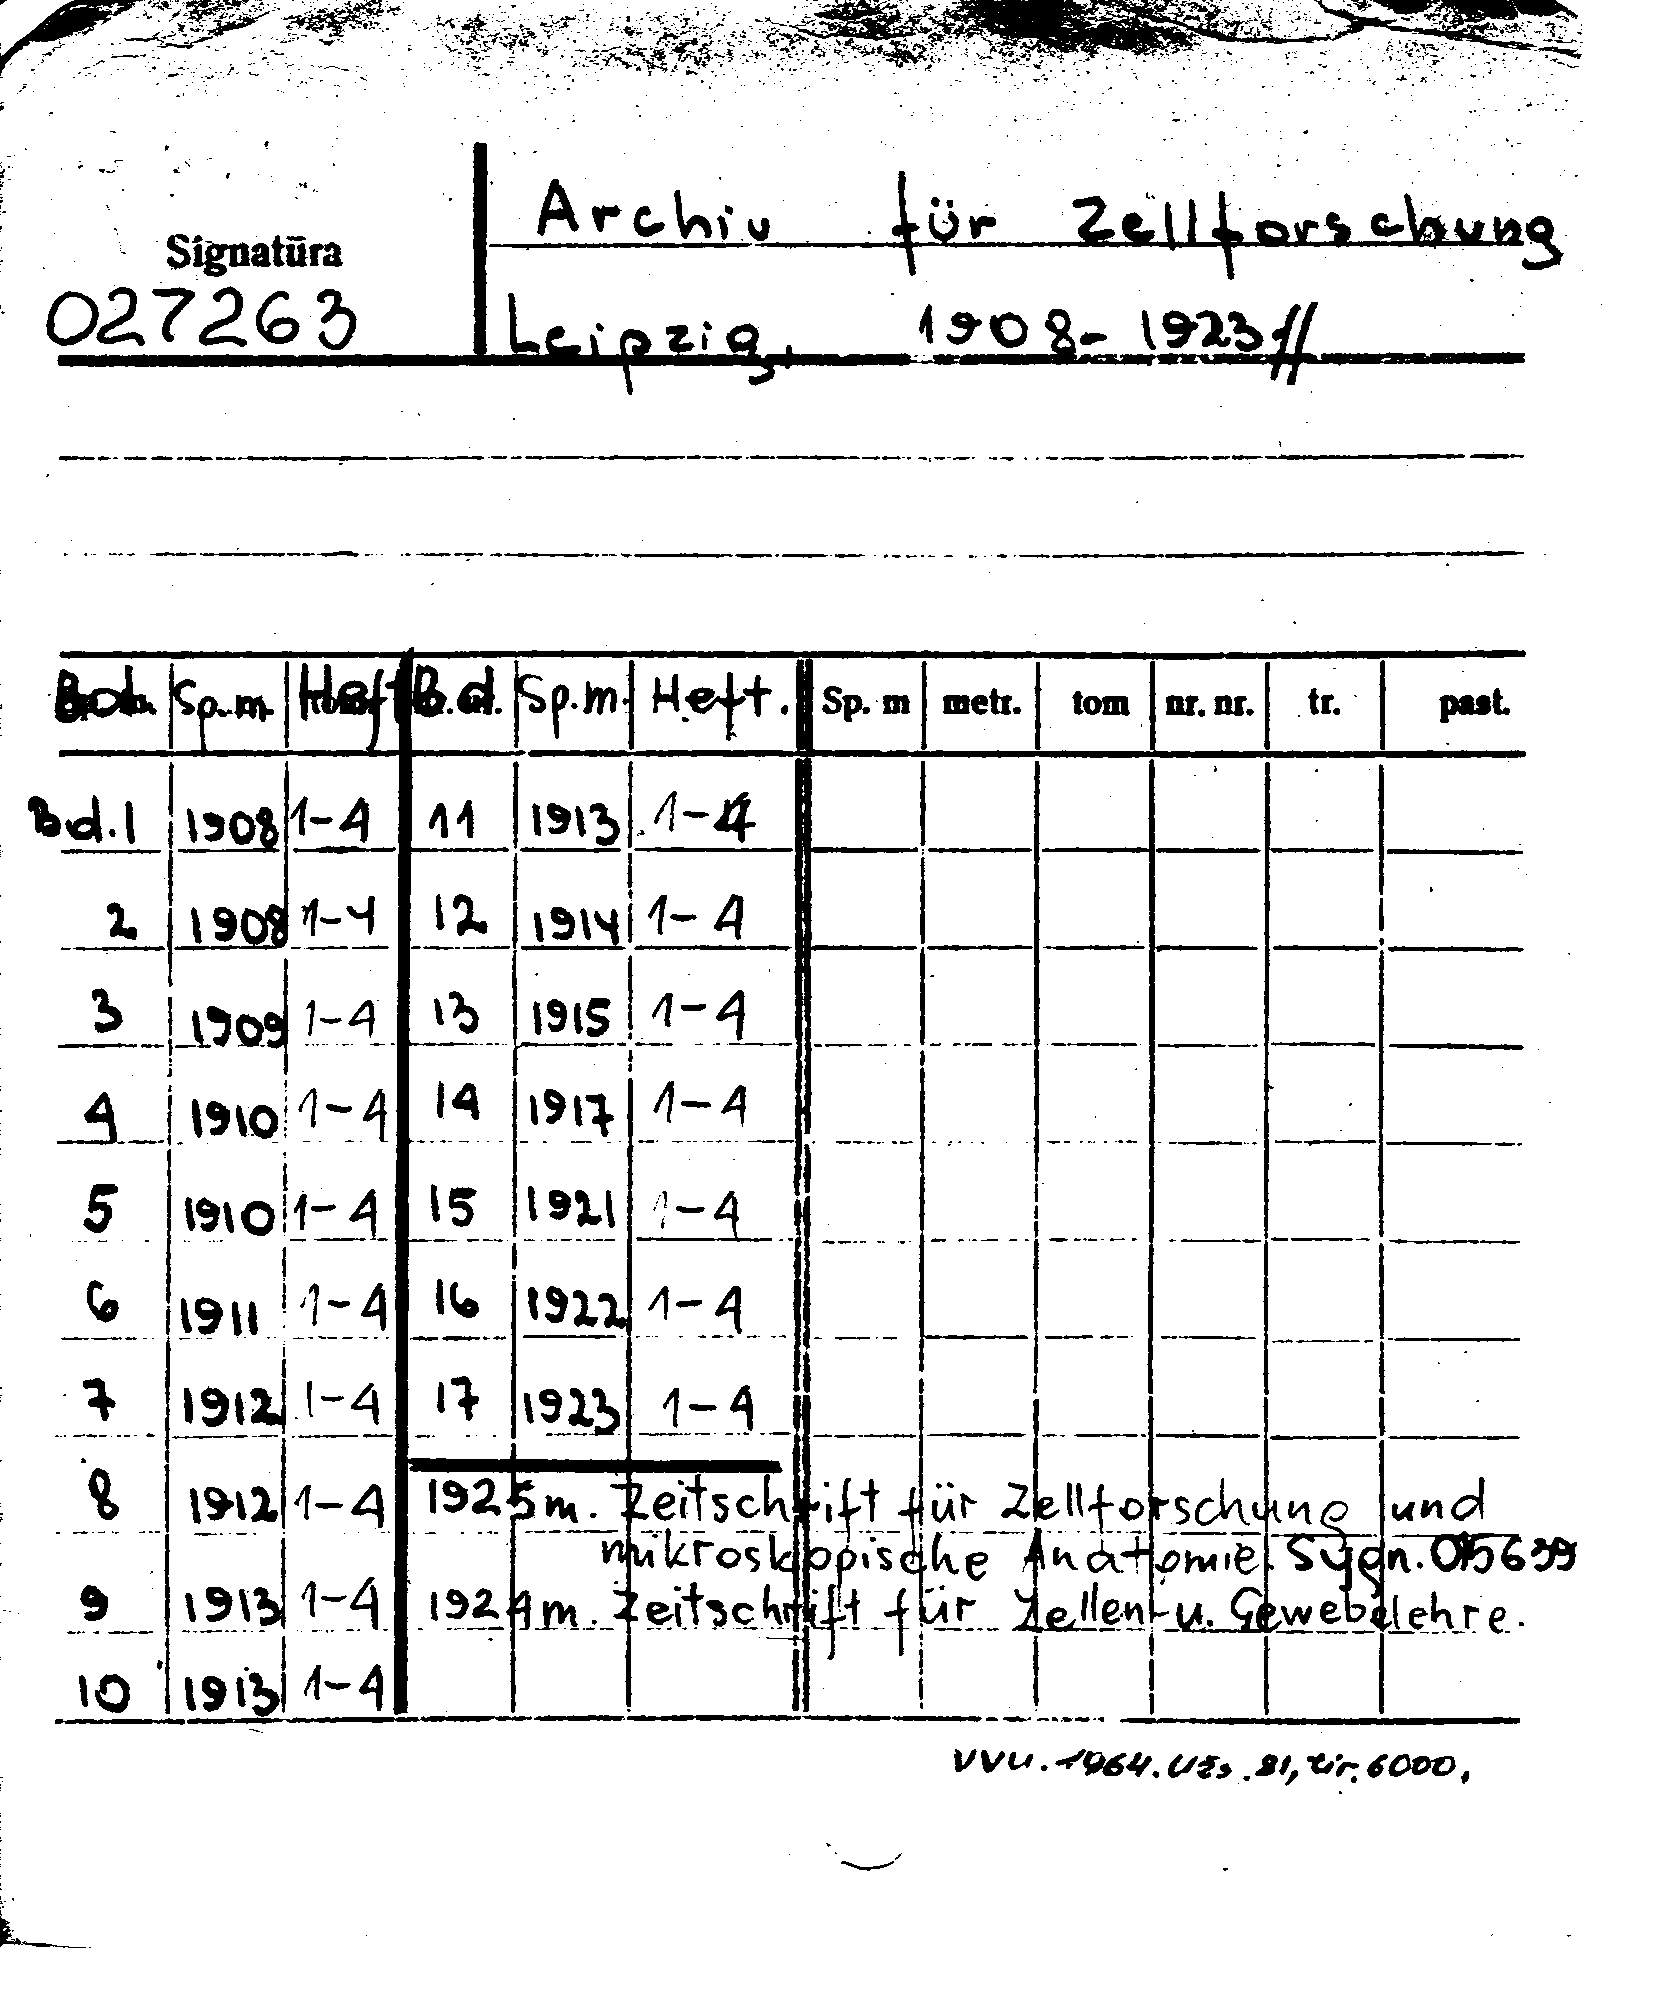 Archiv für Zellforschung
Signatūra
027263
Leipzig, 1908-1923//
Bd. Sp.m. Heft B.d. Sp.m. Heft. Sp. m metr. tom nr. nr. tr. past.
Bd.1 1908 1-4 11 1913 1-4
2 1908 1-4 12 1914 1-4
3 1909 1-4 13 1915 1-4
4 1910 1-4 14 1917 1-4
5 1910 1-4 15 1921 1-4
6 1911 1-4 16 1922 1-4
7 1912 1-4 17 1923 1-4
8 1912 1-4 1925 m. Zeitschrift für Zellforschung und
mikroskopische Anatomie. Sygn.
9 1913 1-4 1924 m. Zeitschrift für Zellen-u. Gewebelehre.
10 1913 1-4
VVU. 1964. Užs. 81, tir. 6000,